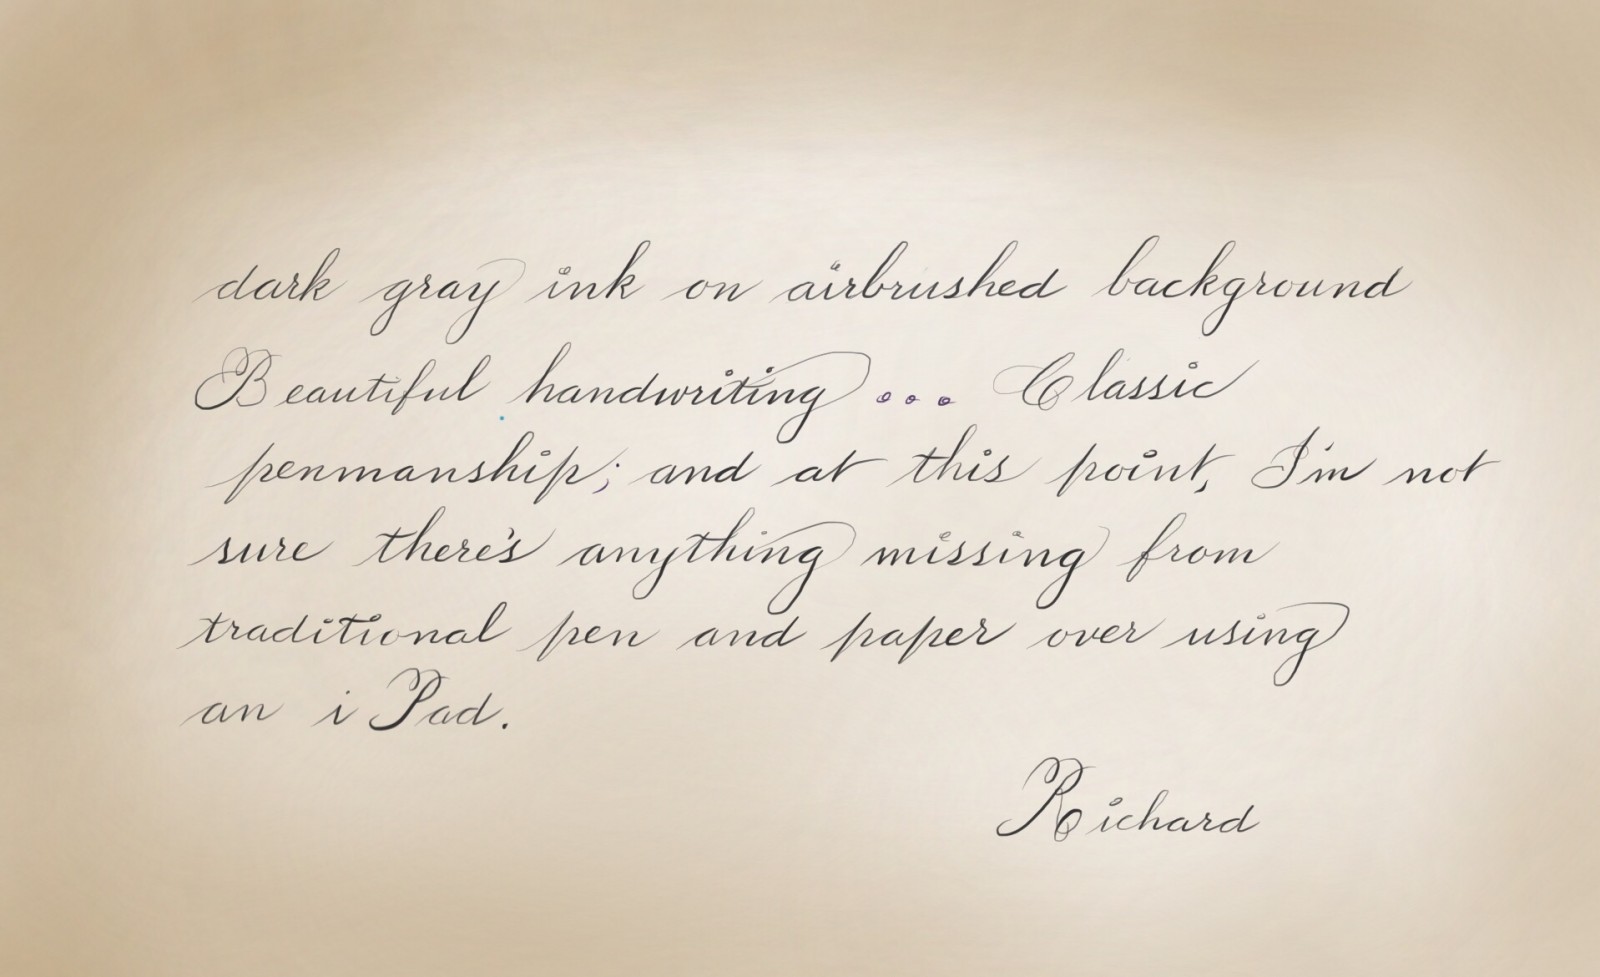 dark gray ink on airbrushed background
Beautiful handwriting... Classic
penmanship; and at this point, I'm not
sure there's anything missing from
traditional pen and paper over using
an iPad.
Richard